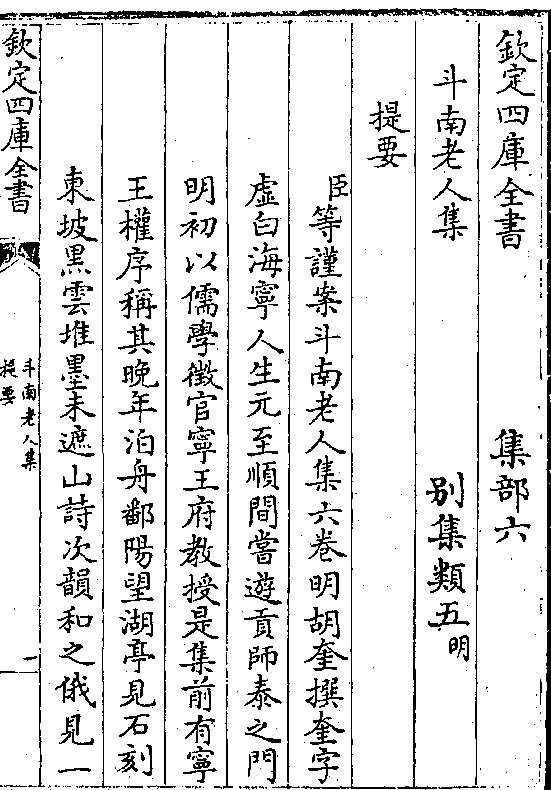 欽定四庫全書　集部六
斗南老人集　别集類五明
提要
臣等謹案斗南老人集六卷明胡奎撰奎字
虚白海寧人生元至順間嘗遊貢師泰之門
明初以儒學徵官寧王府教授是集前有寧
王權序稱其晚年泊舟鄱陽望湖亭見石刻
東坡黒雲堆墨未遮山詩次韻和之俄見一
欽定四庫全書
斗南老人集
提要
一